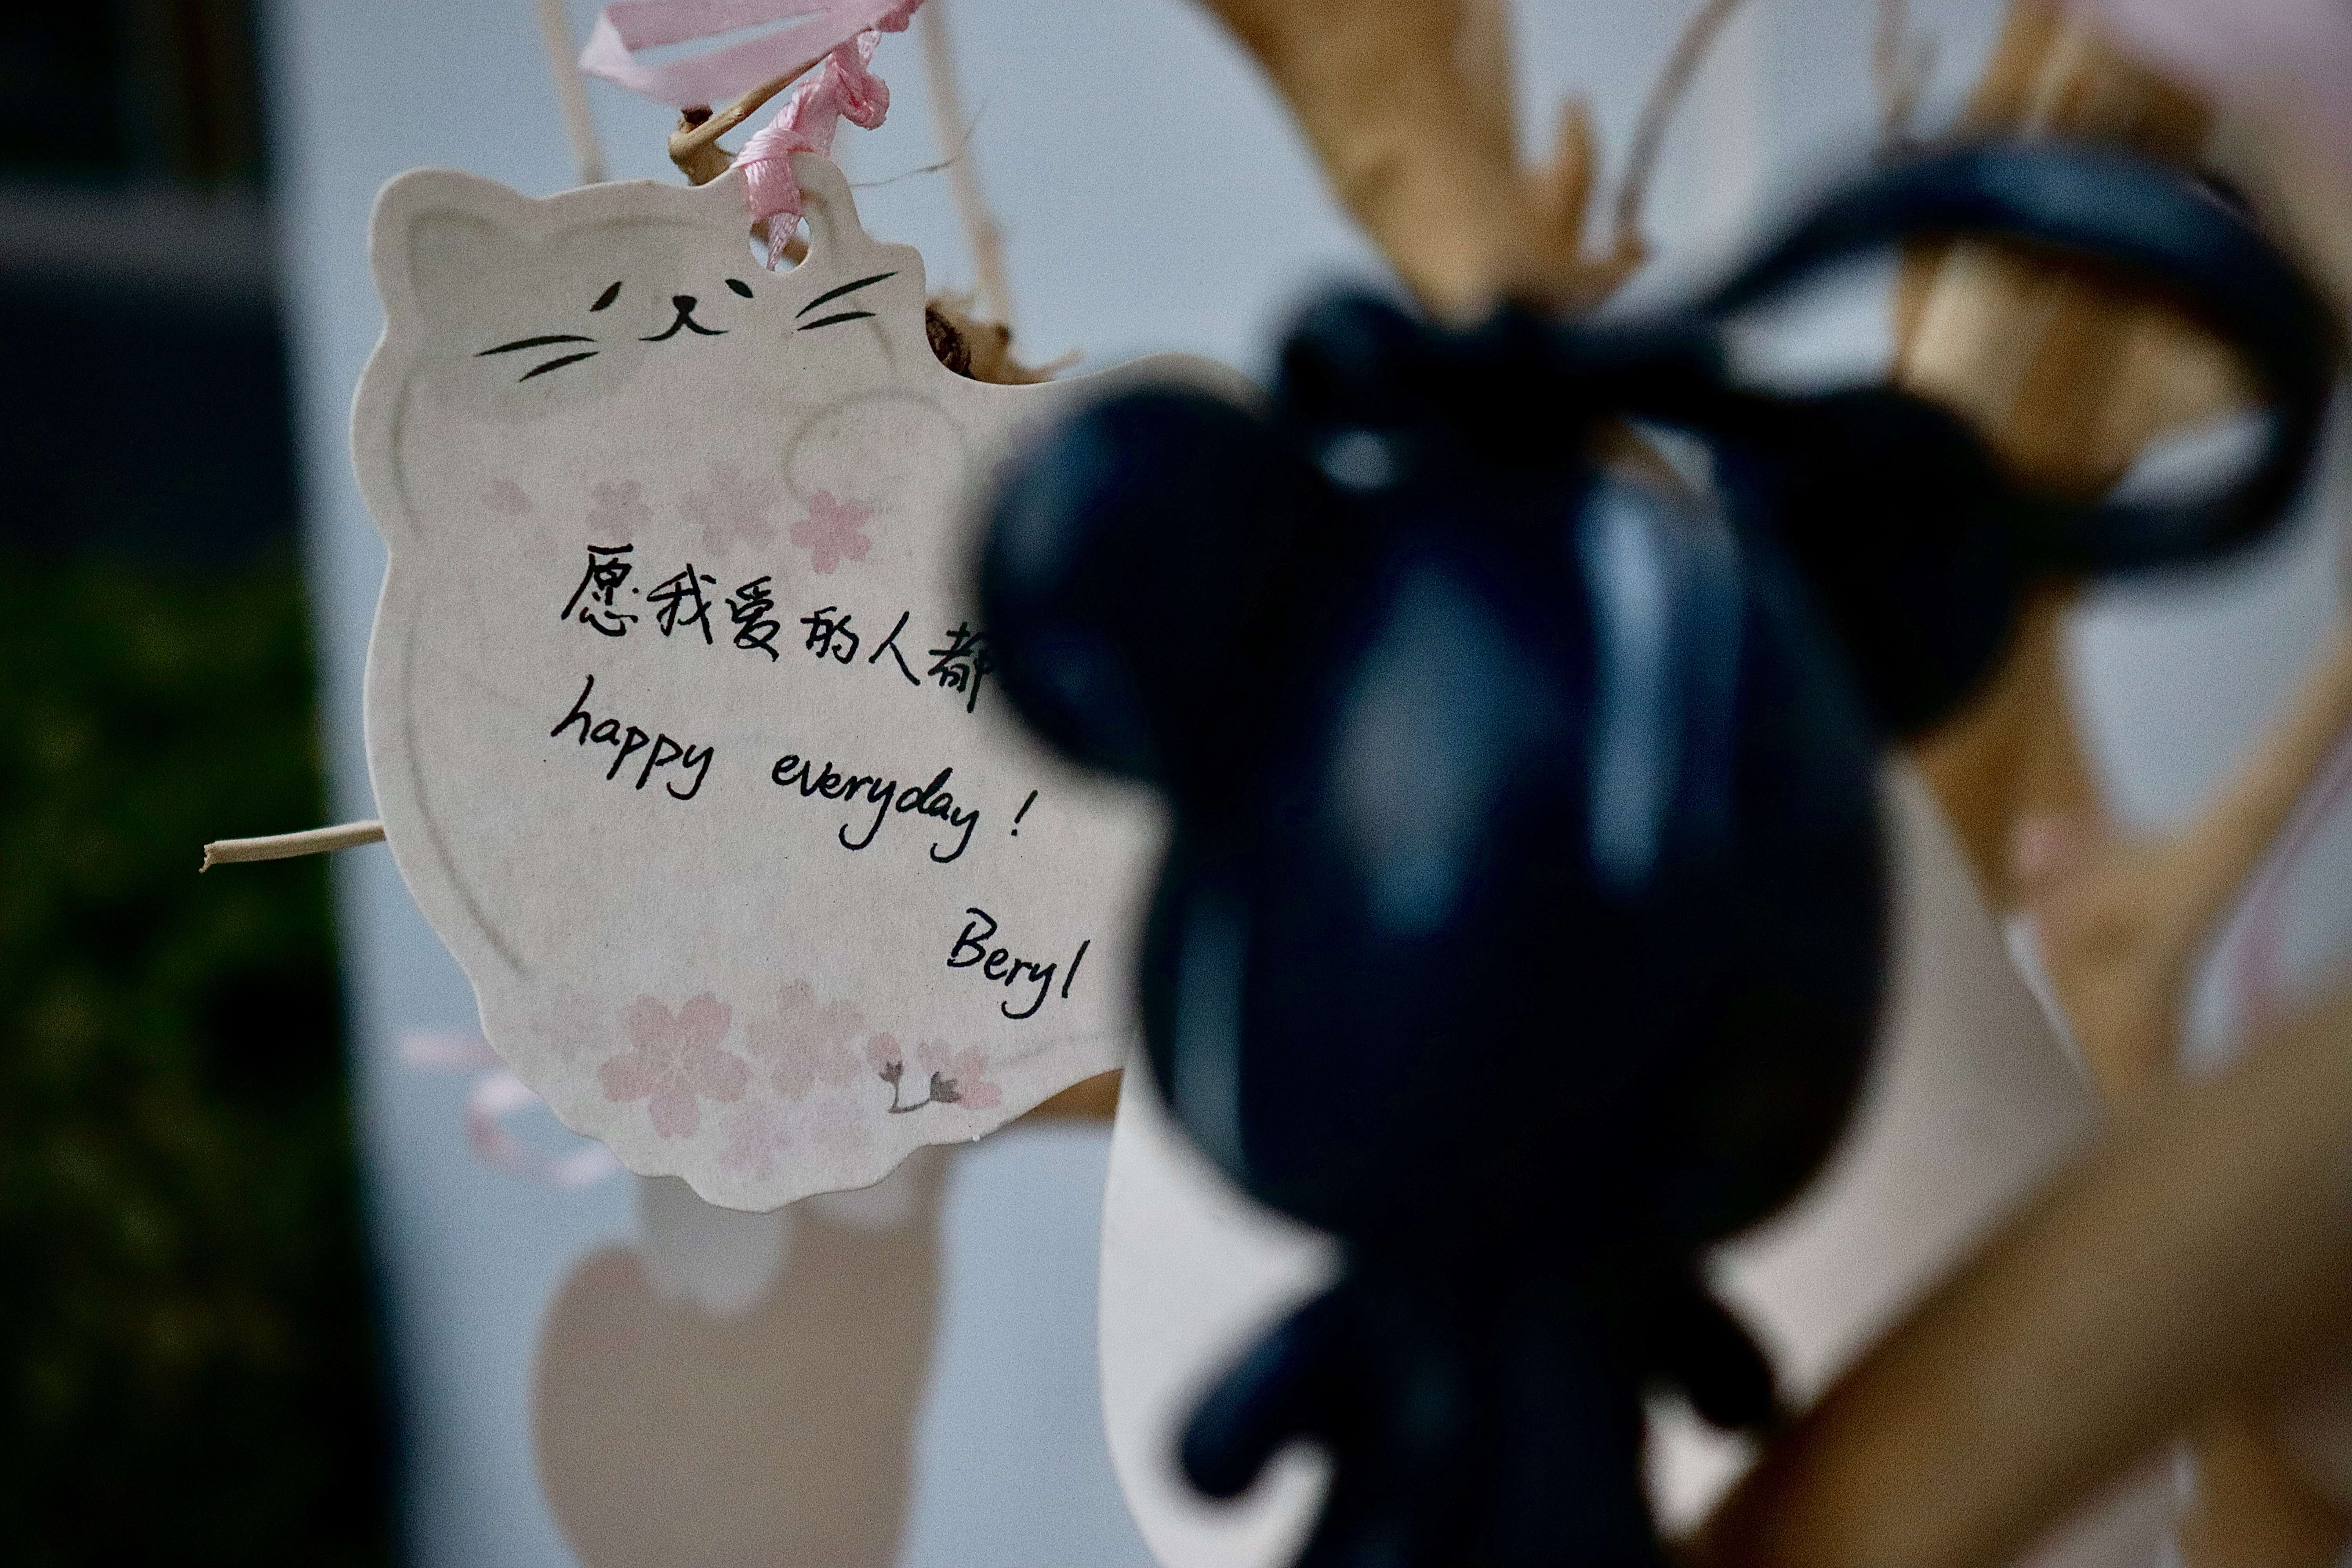 愿我爱的人都
happy everyday!
Beryl